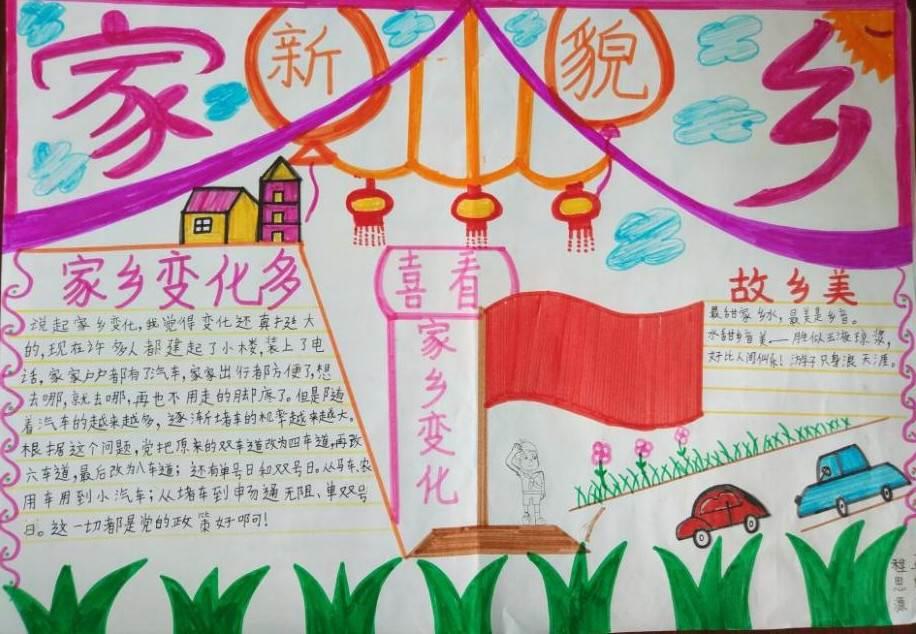 家 新 貌 乡
家乡变化多
说起家乡变化，我觉得变化还真挺大
的，现在许多人都建起了小楼，装上了电
话，家家户户都有了汽车，家家出行都方便了，想
去哪，就去哪，再也不用走的脚疼了。但是随
着汽车的越来越多，逐渐堵车的机率越来越大。
根据这个问题，党把原来的双车道改为四车道，再改
六车道，最后改为八车道；还有单号日和双号日。从马车、农
用车用到小汽车；从堵车到申场通无阻、单双号
日。这一切都是党的政策好啊！
喜看
家乡变化
故乡美
最甜家乡水，最美是乡音。
水甜乡音美——胜似玉液琼浆，
好比人间仙乐！游子只身浪天涯。
程思源